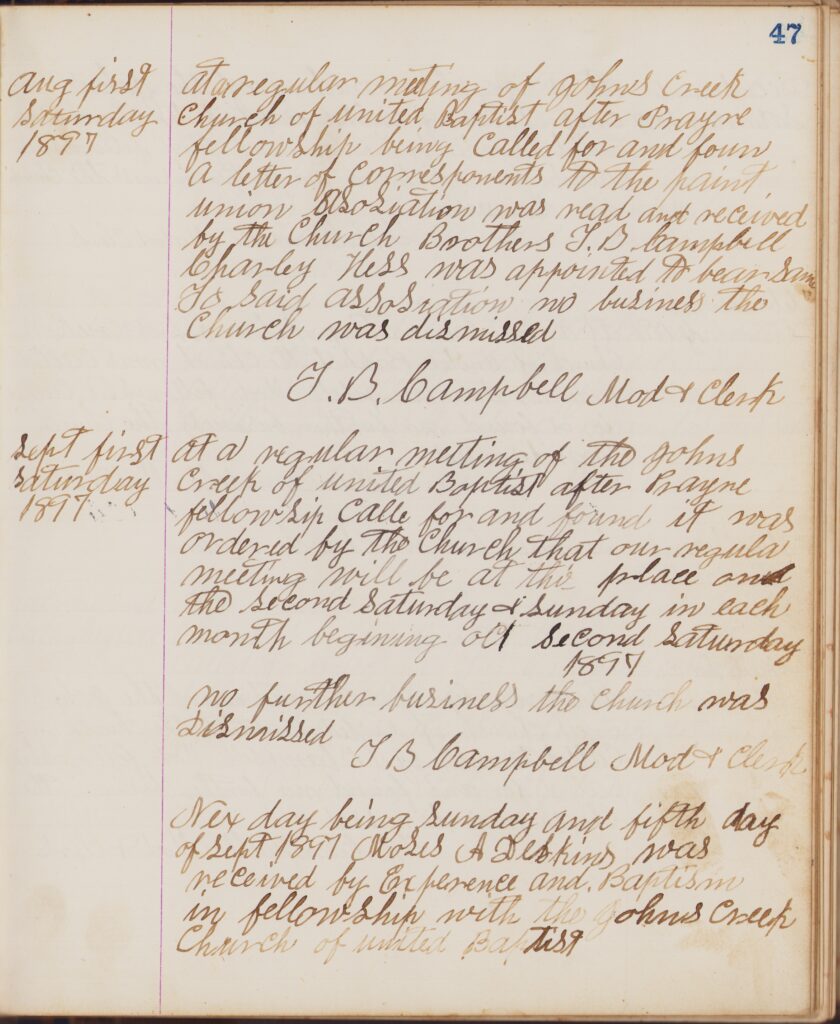 47
Aug first
Saturday
1897
at a regular meeting of Johns Creek
Church of united Baptist after Prayre
fellowship being Called for and foun
a letter of Corresponents to the paint
union Asosiation was read and received
by the Church Brothers T. B Campbell
Charley Hess was appointed to bear Same
To Said assosiation no business the
Church was dismissed
T. B. Campbell Mod & Clerk
Sept first
Saturday
1897
at a regular meeting of the Johns
Creek of united Baptist after Prayre
fellowsip Calle for and found it was
ordered by the Church that our regula
meeting will be at this place and
the Second Saturday & Sunday in each
month begining oct Second Saturday
1897
no further business the Church was
Dismissed
T B Campbell Mod & Clerk
Nex day being Sunday and fifth day
of Sept 1897 Moses A Deskins was
received by Experence and Baptism
in fellowship with the Johns Creek
Church of united Baptist